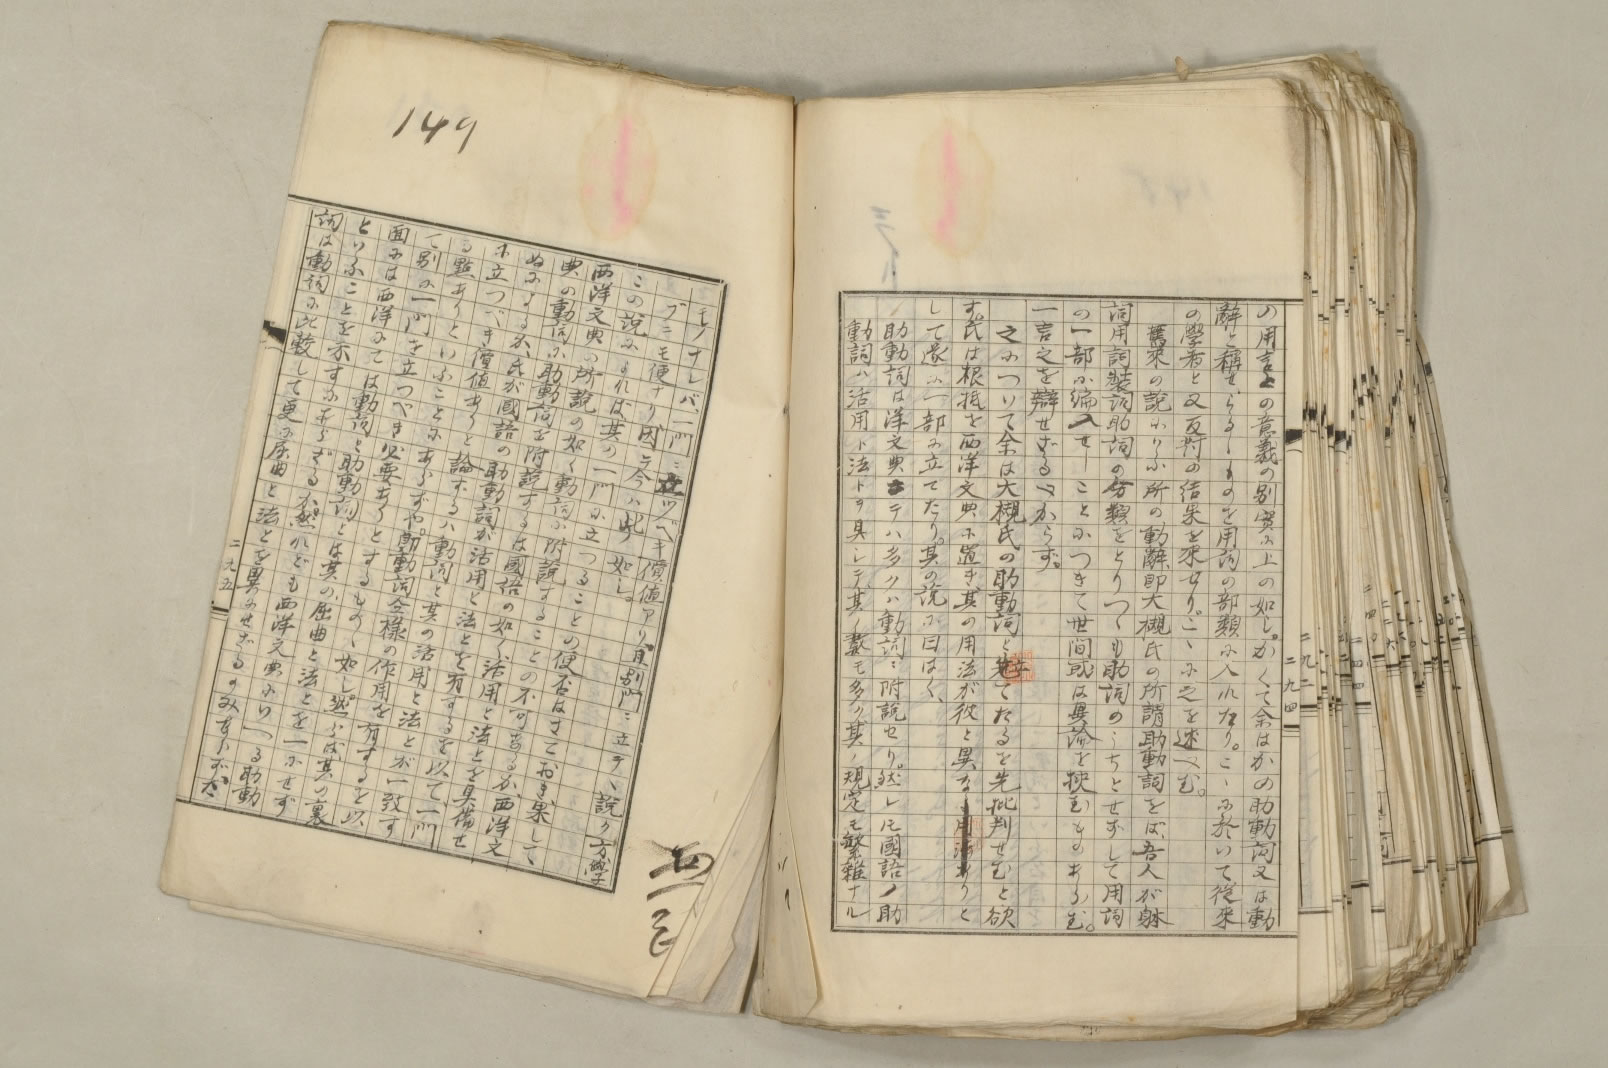 の用言との意義の別實に上の如し。かくて余はかの助動詞又は動
辭と稱せらるゝものを用詞の部類に入れたり。こゝに於いて從來
の學者と又反對の結果を來せり。こゝに之を述べむ。
舊來の說にいふ所の動辭卽大槻氏の所謂助動詞をば、吾人が躰
詞用詞裝詞助詞の分類をとりつゝも助詞のうちとせずして用詞
の一部に編入せしことにつきて世間或は異論を挾むものあらむ。
一言之を辯せざるべからず。
之について余は大槻氏の助動詞とたてたるを先批判せむと欲
す。氏は根據を西洋文典に置き其の用法が彼と異なりと
して遂に一部に立てたり。其の說に曰はく、
助動詞は洋文典ニテハ多クハ動詞ニ附說セリ。然レドモ國語ノ助
動詞ハ活用ト法トヲ具シテ、其ノ數モ多ク、其ノ規定モ繁雜ナル
二九四
149
モノナレバ、一門ニ立ツベキ價値アリ、且別門ニ立テヽ說ク方、學
ブニモ便ナリ、因テ今ハ此ノ如シ。
この說によれば、其の一門に立つることの便否はまておき、果して
西洋文典の所說の如く動詞に附說することの不可なるか、西洋文
典の動詞に助動詞を附說するは國語の如く活用と法とを具備せ
ぬによるか、氏が國語の助動詞が活用と法とを有するを以て、一門
に立つべき價値ありと論ずるは動詞と其の活用と法とが一致す
る點ありといふことにあらずや。助動詞全樣の作用を有するを以
て別に一門を立つべき必要ありとするものゝ如し。然らば其の裏
面には西洋にては動詞と助動詞とは其の屈曲と法とを一にせず
といふことを示すにあらざるか。然れども西洋文典にいへる助動
詞は動詞に比較して更に屈曲と法とを異にせざるのみならず、
二九五